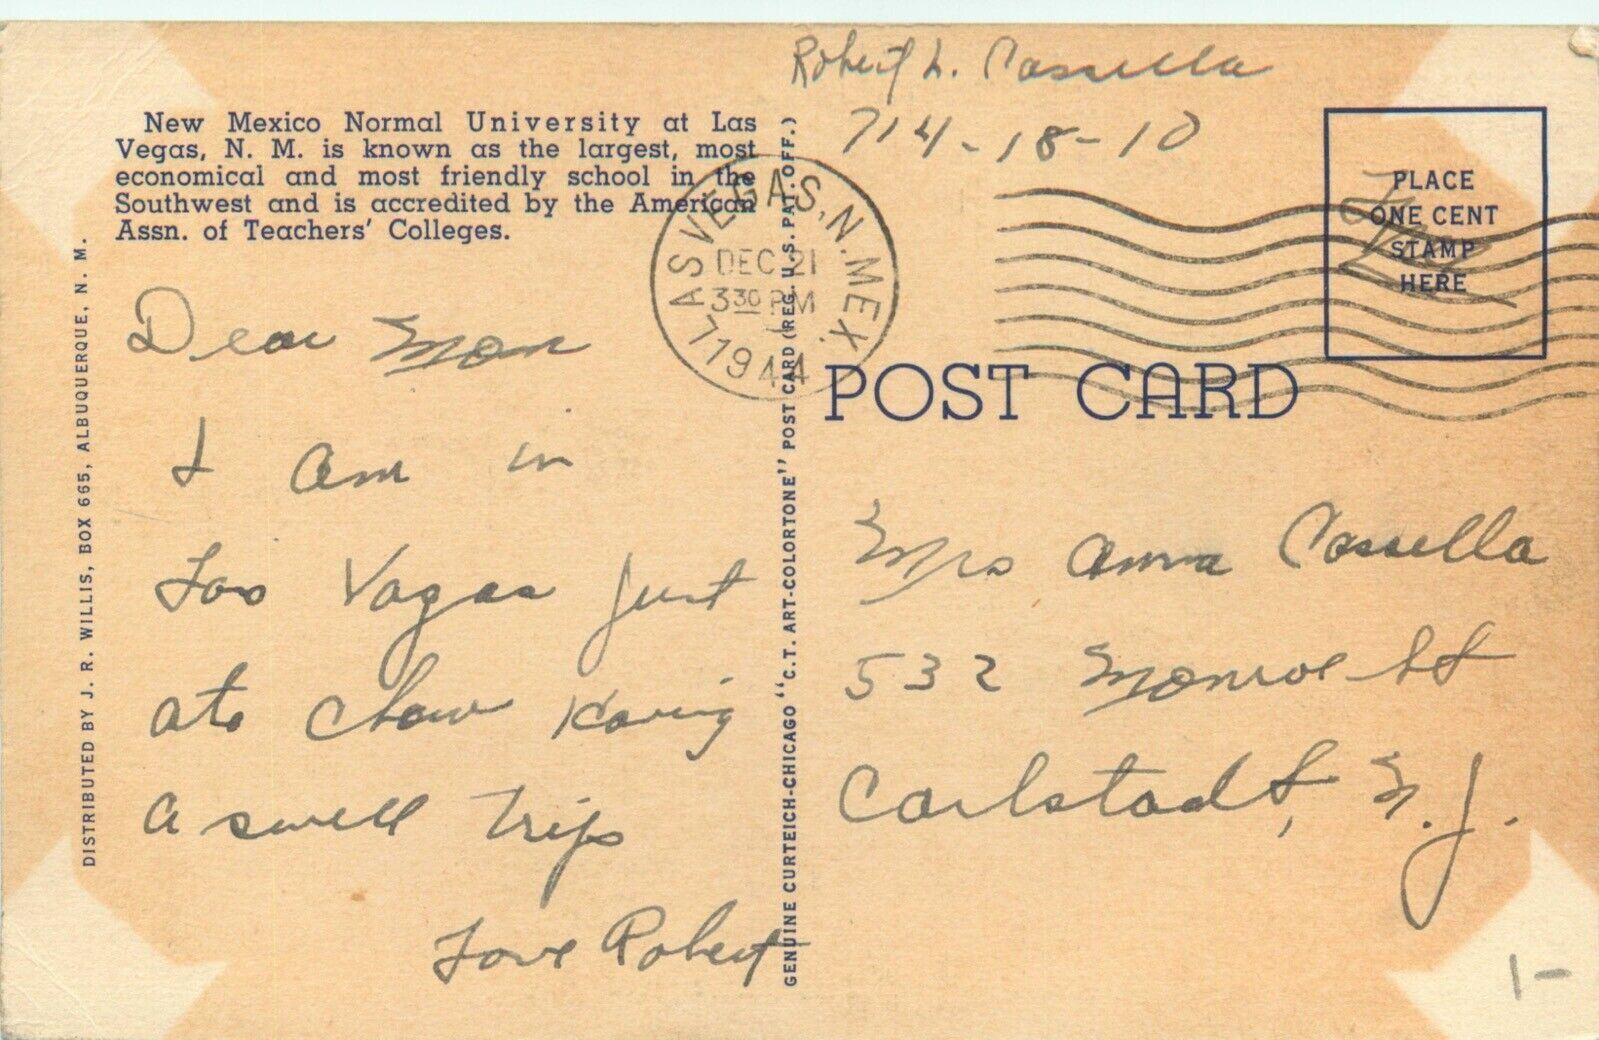 Robert L. Cassella
714-18-10
New Mexico Normal University at Las
Vegas, N. M. is known as the largest, most
economical and most friendly school in the
Southwest and is accredited by the American
Assn. of Teachers' Colleges.
LAS VEGAS, N. MEX.
DEC 21
3 30 PM
1944
PLACE
ONE CENT
STAMP
HERE
Free
POST CARD
Dear Mom
I am in
Las Vagas just
ate chow Having
a swell trip
Love Robert
Mrs Anna Cassella
532 Monroe St
Carlstadt, N.J.
1-
DISTRIBUTED BY J. R. WILLIS, BOX 665, ALBUQUERQUE, N. M.
GENUINE CURTEICH-CHICAGO "C.T. ART-COLORTONE" POST CARD (REG. U.S. PAT. OFF.)